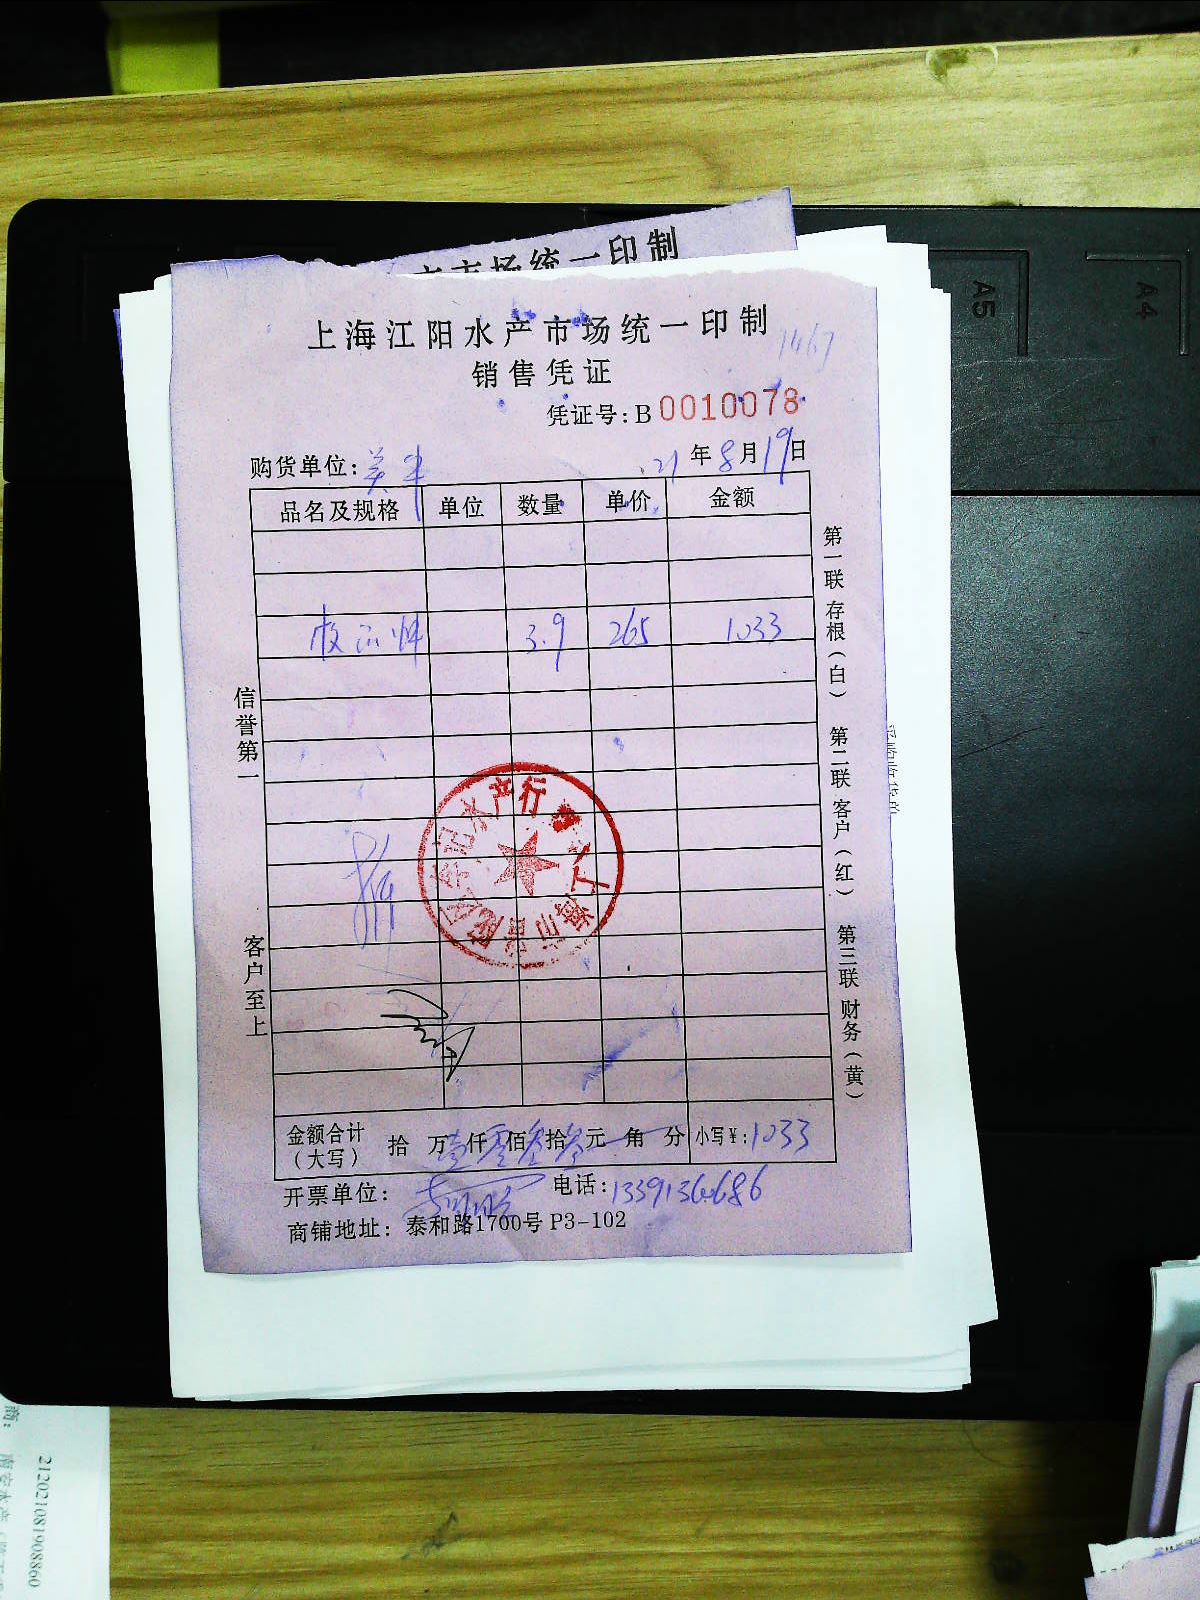 市场统一印制
上海江阳水产市场统一印制
1467
销售凭证
凭证号: B 0010078
购货单位: 21 年 8 月 19 日
品名及规格 单位 数量 单价 金额
3.9 265 1033
信誉第一
客户至上
第一联 存根(白) 第二联 客户(红) 第三联 财务(黄)
水产行
金额合计(大写) 拾 万 壹 仟 零 佰 叁 拾 叁 元 角 分 小写¥: 1033
开票单位: 电话: 13391364686
商铺地址: 泰和路1700号 P3-102
A5
A4
商:
212021081908860